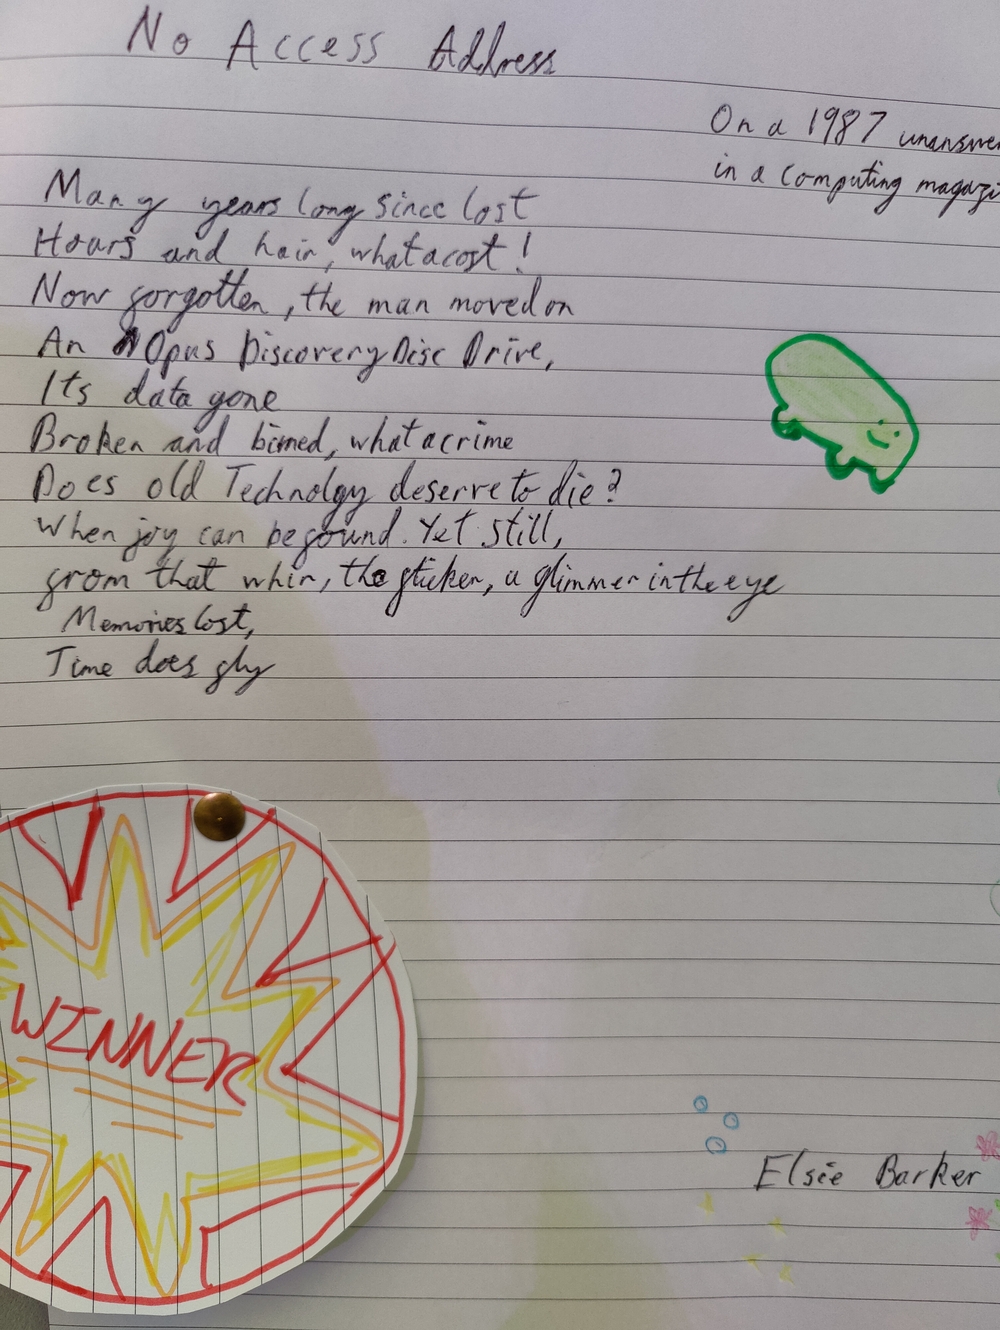 No Access Address
On a 1987
in a computing
Many years long since lost
Hours and hair, what a cost!
Now forgotten, the man moved on
An Opus Discovery Disc Drive,
Its data gone
Broken and binned, what a crime
Does old Technolgy deserve to die?
When joy can be found. Yet still,
from that whir, the flicker, a glimmer in the eye
Memories lost,
Time does fly
WINNER
Elsie Barker